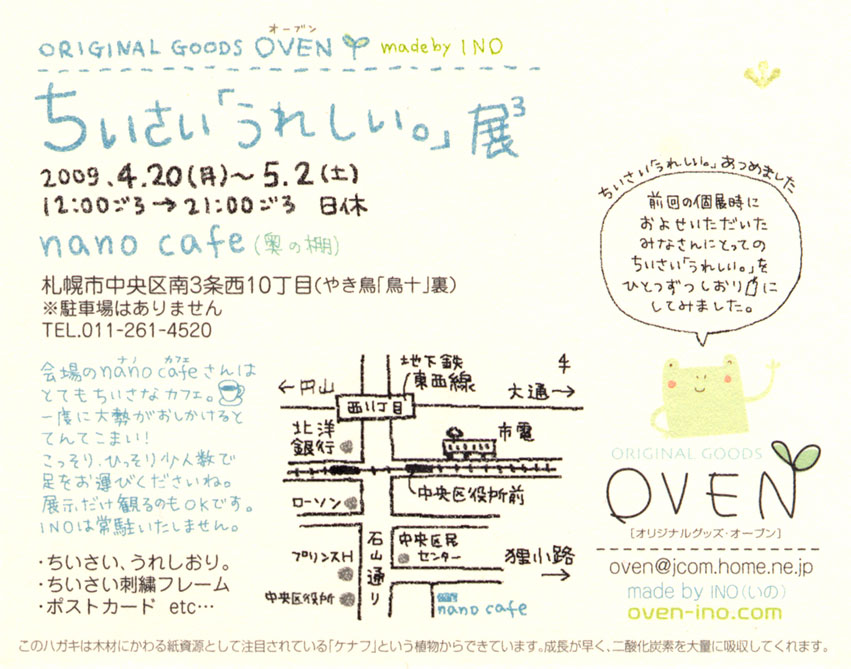 オーブン
ORIGINAL GOODS OVEN made by INO
ちいさい「うれしい。」展3
2009.4.20(月)〜5.2(土)
12:00ごろ→21:00ごろ 日休
nano cafe(奥の棚)
札幌市中央区南3条西10丁目(やき鳥「鳥十」裏)
※駐車場はありません
TEL.011-261-4520
ナノ カフェ
会場のnano cafeさんは
とてもちいさなカフェ。
一度に大勢がおしかけると
てんてこまい!
こっそり、ひっそり少人数で
足をお運びくださいね。
展示だけ観るのもOKです。
INOは常駐いたしません。
・ちいさい、うれしおり。
・ちいさい刺繍フレーム
・ポストカード etc…
地下鉄
東西線
4
←円山
大通→
西11丁目
北洋
銀行
市電
中央区役所前
ローソン
石山通り
中央区民
センター
プリンスH
狸小路
→
中央区役所
nano cafe
ちいさい「うれしい。」あつめました
前回の個展時に
およせいただいた
みなさんにとっての
ちいさい「うれしい。」を
ひとつずつしおりに
してみました。
ORIGINAL GOODS
OVEN
[オリジナルグッズ・オーブン]
oven@jcom.home.ne.jp
made by INO(いの)
oven-ino.com
このハガキは木材にかわる紙資源として注目されている「ケナフ」という植物からできています。成長が早く、二酸化炭素を大量に吸収してくれます。